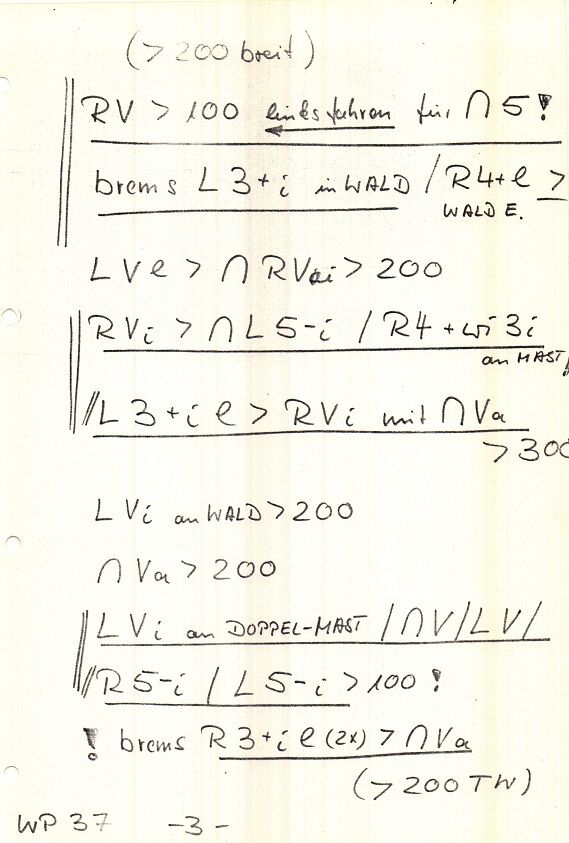 (> 200 breit)
RV > 100 links fahren für ∩ 5!
brems L 3+i in WALD / R4+e >
WALD E.
L V e > ∩ RV ai > 200
RVi > ∩ L 5-i / R4 + wi 3i
an MAST!
// L 3+i e > RVi mit ∩ Va
> 300
L Vi an WALD > 200
∩ Va > 200
L Vi an DOPPEL-MAST / ∩V / LV /
// R 5-i / L 5-i > 100 !
! brems R 3+i e (2x) > ∩ Va
(> 200 TW)
WP 37 -3-